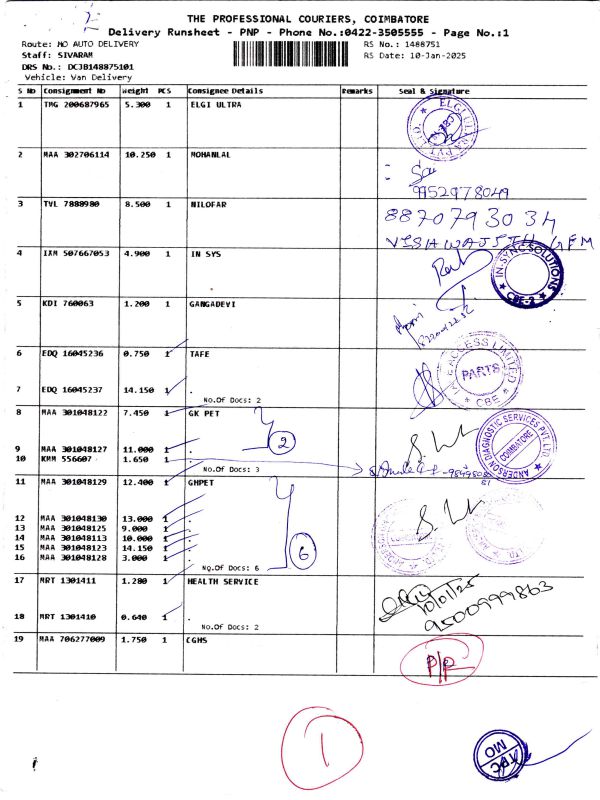 THE PROFESSIONAL COURIERS, COIMBATORE
Delivery Runsheet - PNP - Phone No.:0422-3505555 - Page No.:1
Route: MO AUTO DELIVERY RS No.: 1488751
Staff: SIVARAM RS Date: 10-Jan-2025
DRS No.: DCJB148875101
Vehicle: Van Delivery
S No Consignment No Weight PCS Consignee Details Remarks Seal & Signature
1 TMG 200687965 5.300 1 ELGI ULTRA
2 MAA 302706114 10.250 1 MOHANLAL
9952978049
3 TVL 7888980 8.500 1 NILOFAR
8870793034
4 IXM 507667053 4.900 1 IN SYS
IN-SYNC SOLUTIONS
CBE-2
5 KDI 760063 1.200 1 GANGADEVI
6 EDQ 16045236 0.750 1 TAFE
ACCESS LIMITED
PARTS
CBE
7 EDQ 16045237 14.150 1 .
No.Of Docs: 2
8 MAA 301048122 7.450 1 GK PET
2
ANDERSON DIAGNOSTIC SERVICES PVT LTD
COIMBATORE
9 MAA 301048127 11.000 1 .
10 KMM 556607 1.650 1 .
No.Of Docs: 3
11 MAA 301048129 12.400 1 GHPET
12 MAA 301048130 13.000 1 .
13 MAA 301048125 9.000 1 .
14 MAA 301048113 10.000 1 .
15 MAA 301048123 14.150 1 .
16 MAA 301048128 3.000 1 .
6
No.Of Docs: 6
17 MRT 1301411 1.280 1 HEALTH SERVICE
10/01/25
9500999863
18 MRT 1301410 0.640 1 .
No.Of Docs: 2
19 MAA 706277009 1.750 1 CGHS
P/P
1
MO